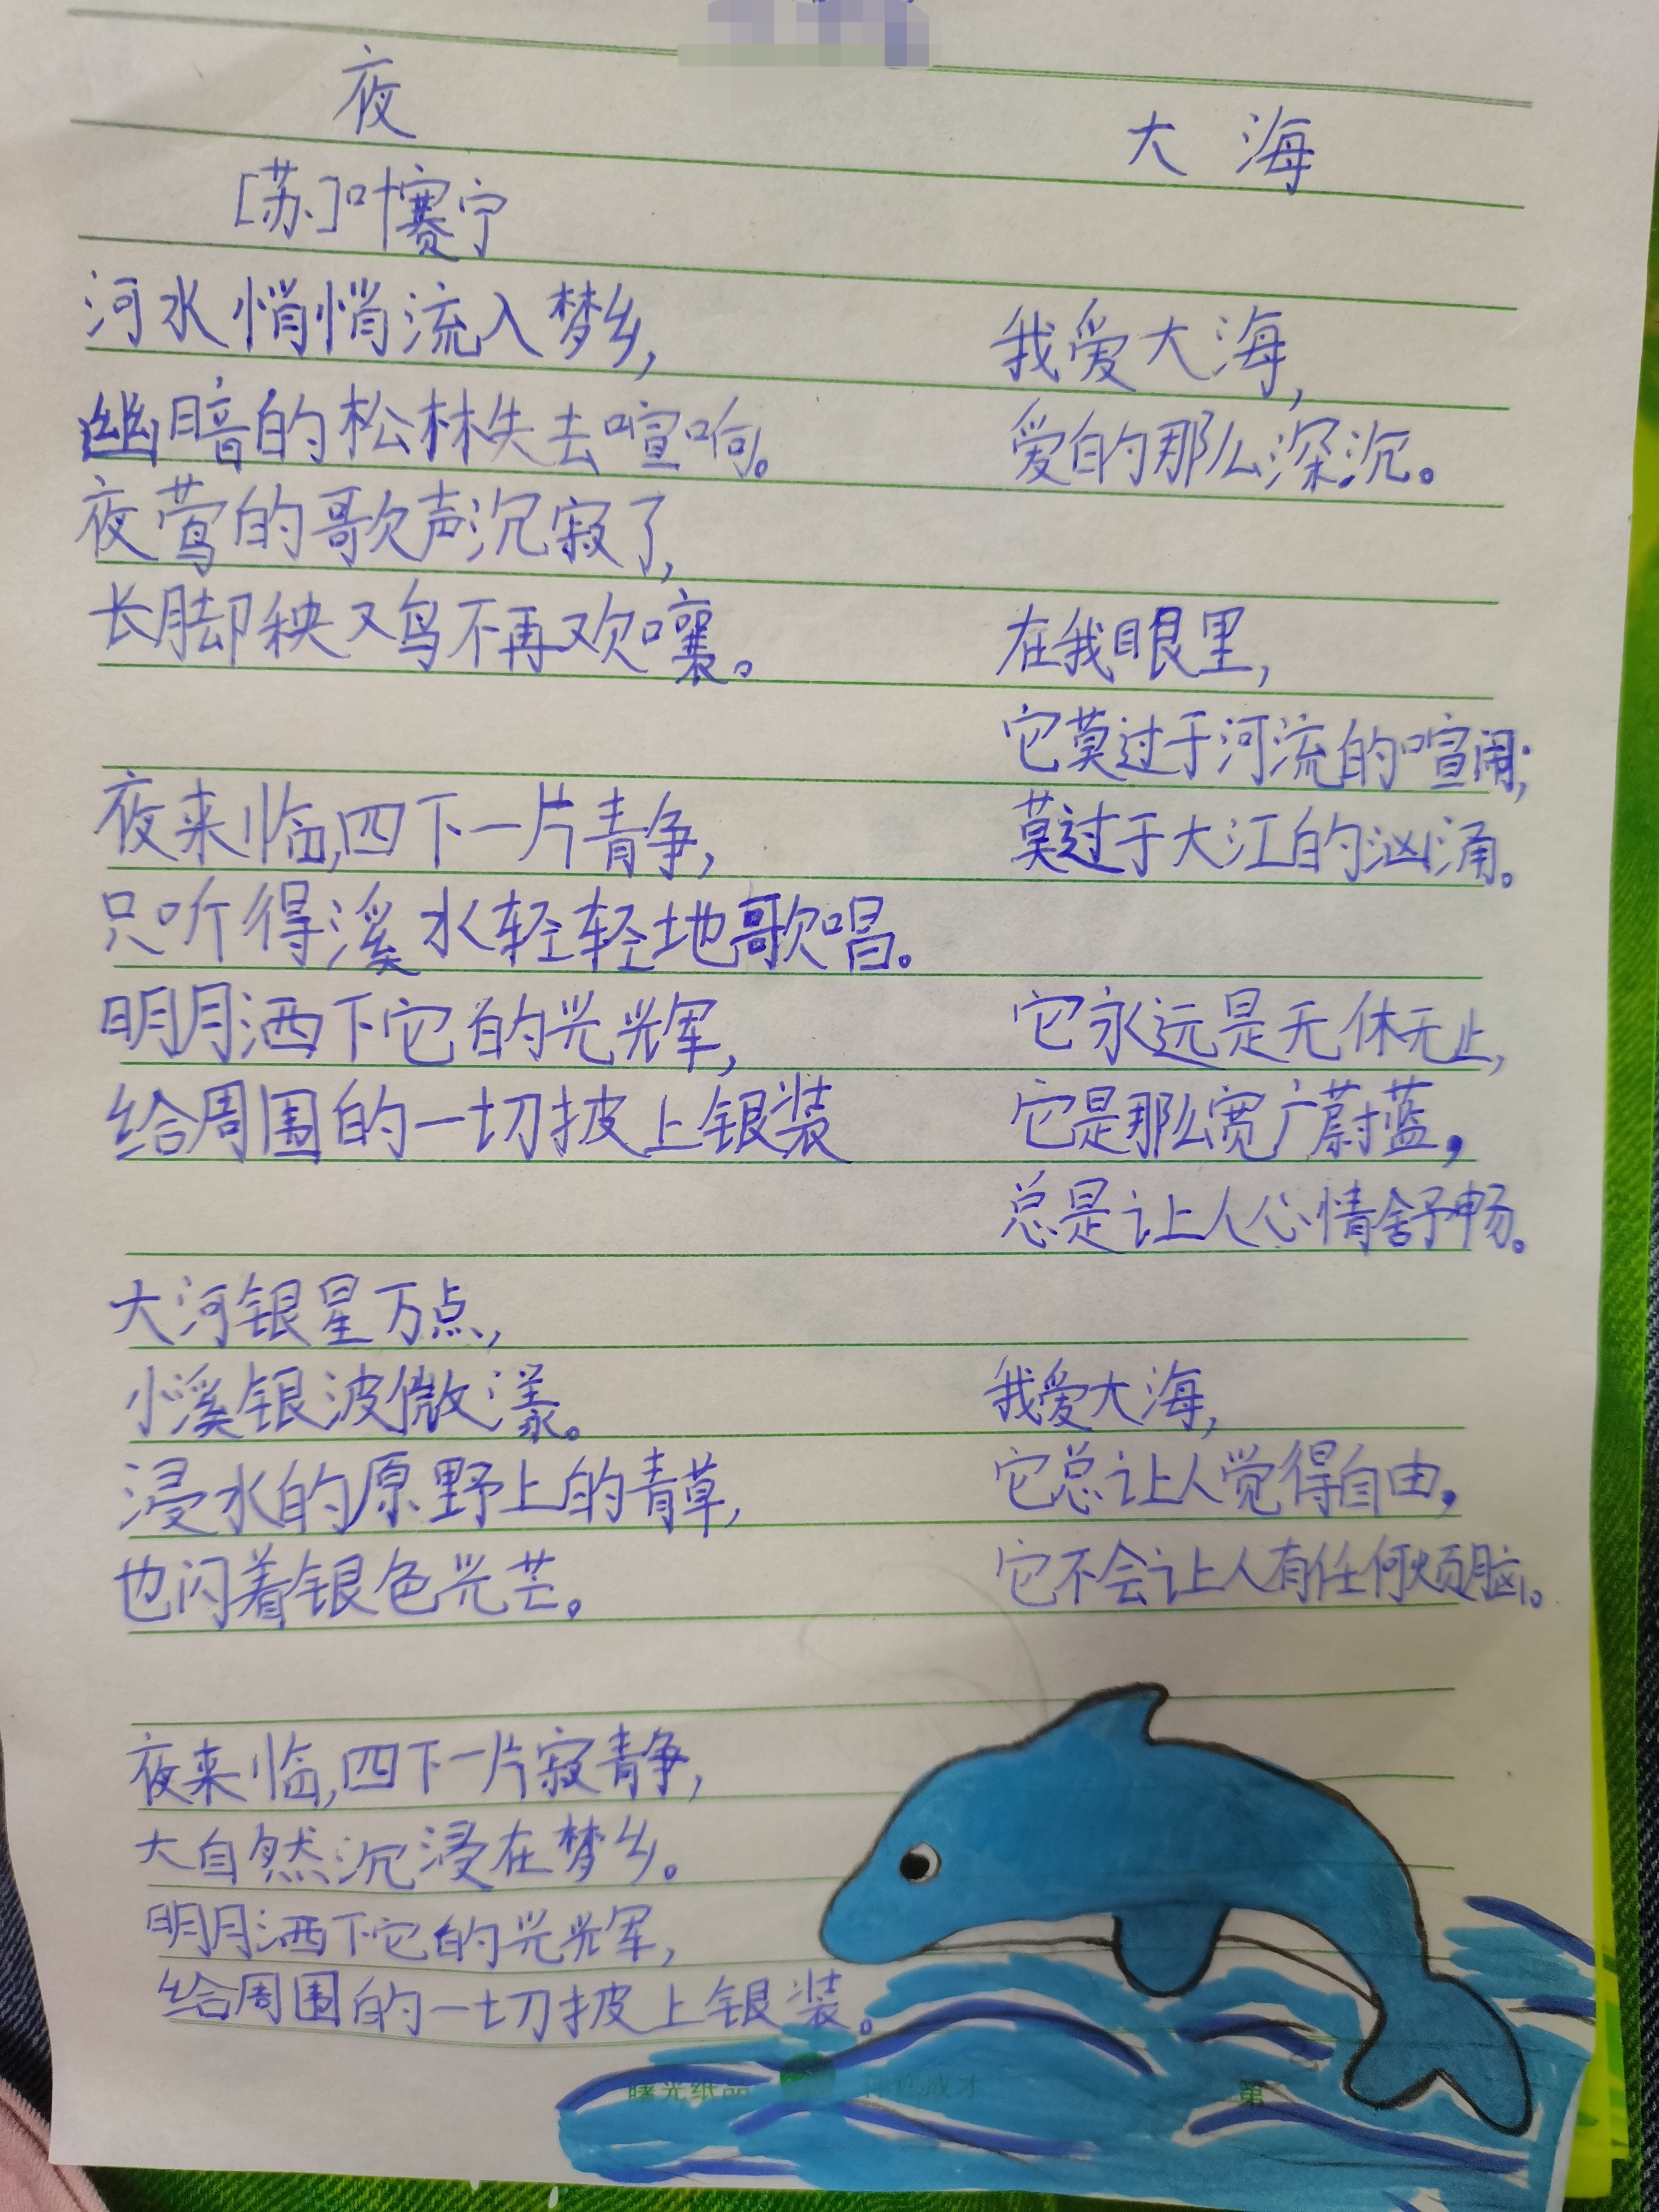 夜
[苏]叶赛宁
河水悄悄流入梦乡,
幽暗的松林失去喧响。
夜莺的歌声沉寂了,
长脚秧又鸟不再欢嚷。
夜来临,四下一片青争,
只听得溪水轻轻地歌唱。
明月洒下它的光辉,
给周围的一切披上银装
大河银星万点,
小溪银波微漾。
浸水的原野上的青草,
也闪着银色光芒。
夜来临,四下一片寂静,
大自然沉浸在梦乡。
明月洒下它的光辉,
给周围的一切披上银装。
大海
我爱大海,
爱的那么深沉。
在我眼里,
它莫过于河流的喧闹;
莫过于大江的汹涌。
它永远是无休无止,
它是那么宽广蔚蓝,
总是让人心情舒畅。
我爱大海,
它总让人觉得自由,
它不会让人有任何烦脑。
曙光纸品
第